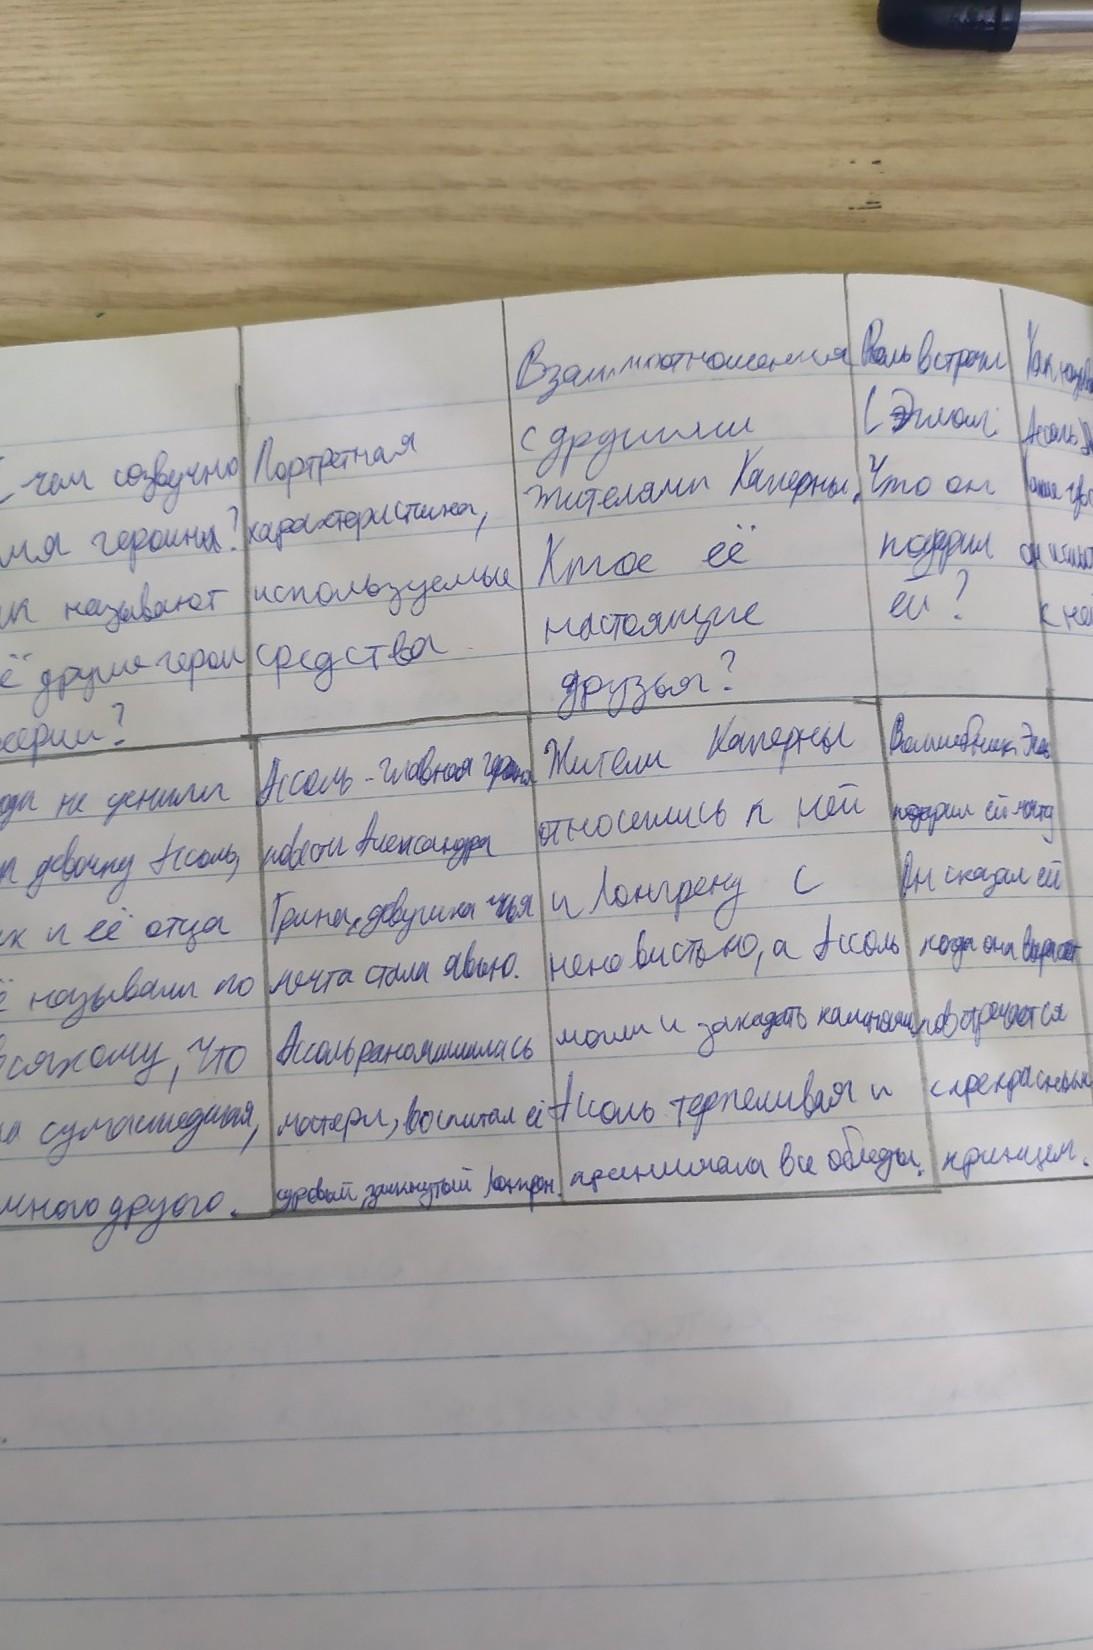 С чем созвучно
мя героини?
называют
ё другие герои
феерии?
Портретная
характеристика,
используемые
средства
Взаимоотношения
с другими
жителями Каперны.
Кто её
настоящие
друзья?
Роль встречи
с Эглом.
Что он
подарил
ей?
Ассоль
к ней
не ценили
девочку Ассоль,
и её отца
называли по
всякому, что
сумасшедшая,
много другого.
Ассоль - главная героиня
повести Александра
Грина, девушка чья
мечта стала явью.
Ассоль рано лишилась
матери, воспитал её
суровый, замкнутый Лонгрен.
Жители Каперны
относились к ней
и Лонгрену с
ненавистью, а Ассоль
могли и закидать камнями,
Ассоль терпеливая и
принимала все обиды.
Волшебник Эгль
подарил ей мечту
Он сказал ей
когда она вырастет
повстречается
с прекрасным
принцем.